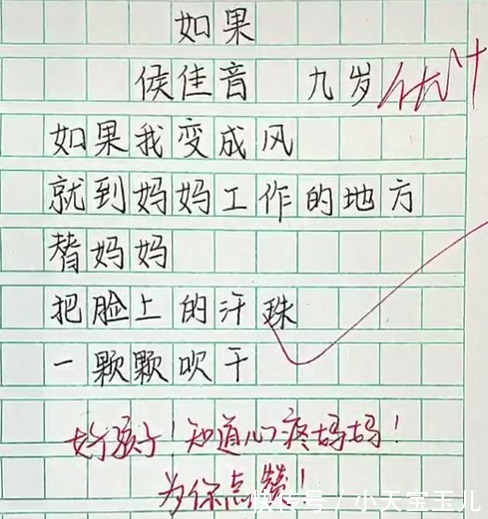 如果
侯佳音 九岁 优计
如果我变成风
就到妈妈工作的地方
替妈妈
把脸上的汗珠
一颗颗吹干
好孩子!知道心疼妈妈!
为你点赞!
快传号/小天宝玉儿